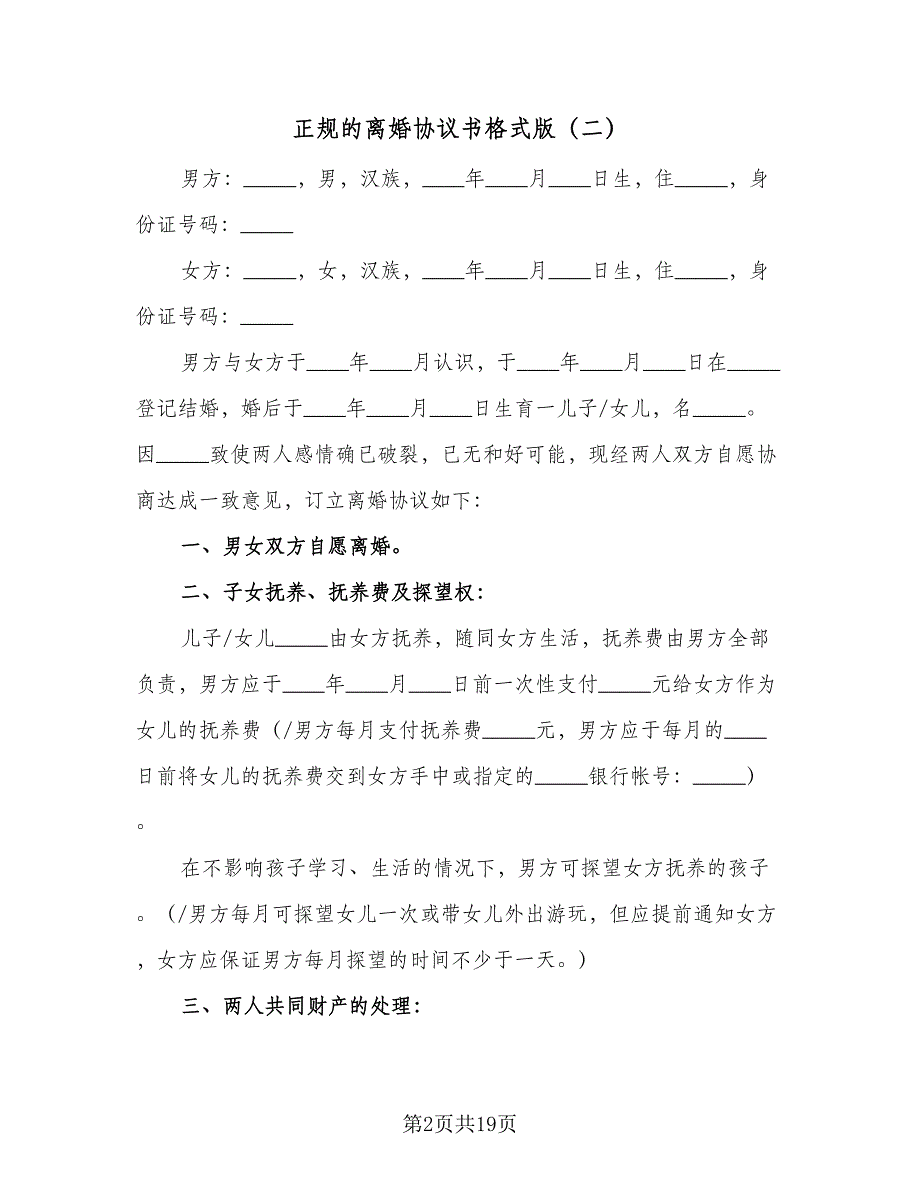 正规的离婚协议书格式版（二）
男方：_____，男，汉族，____年____月____日生，住_____，身
份证号码：_____
女方：_____，女，汉族，____年____月____日生，住_____，身
份证号码：_____
男方与女方于____年____月认识，于____年____月____日在_____
登记结婚，婚后于____年____月____日生育一儿子/女儿，名_____。
因_____致使两人感情确已破裂，已无和好可能，现经两人双方自愿协
商达成一致意见，订立离婚协议如下：
一、男女双方自愿离婚。
二、子女抚养、抚养费及探望权：
儿子/女儿_____由女方抚养，随同女方生活，抚养费由男方全部
负责，男方应于____年____月____日前一次性支付_____元给女方作为
女儿的抚养费（/男方每月支付抚养费_____元，男方应于每月的____
日前将女儿的抚养费交到女方手中或指定的_____银行帐号：_____）
。
在不影响孩子学习、生活的情况下，男方可探望女方抚养的孩子
。（/男方每月可探望女儿一次或带女儿外出游玩，但应提前通知女方
，女方应保证男方每月探望的时间不少于一天。）
三、两人共同财产的处理：
第2页共19页